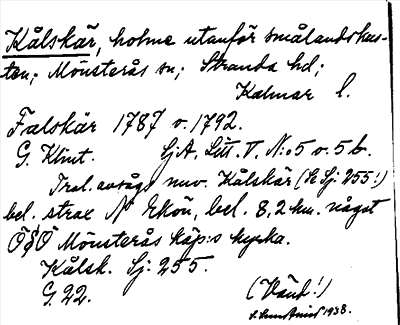 Kålskär, holme utanför smålandskus-
ten; Mönsterås sn; Stranda hd;
Kalmar l.
Falskär 1787 o. 1792.
G. Klint. SjA, Litt. V, N:o 5 o. 5 b.
Trol. avsågs nuv. Kålskär (Se Sj. 255!)
bel. strax N Ekön, bel. 8,2 km. något
ÖSÖ Mönsterås köp:s kyrka.
Kålsk. Sj: 255.
G. 22. (Vänd!)
1938.